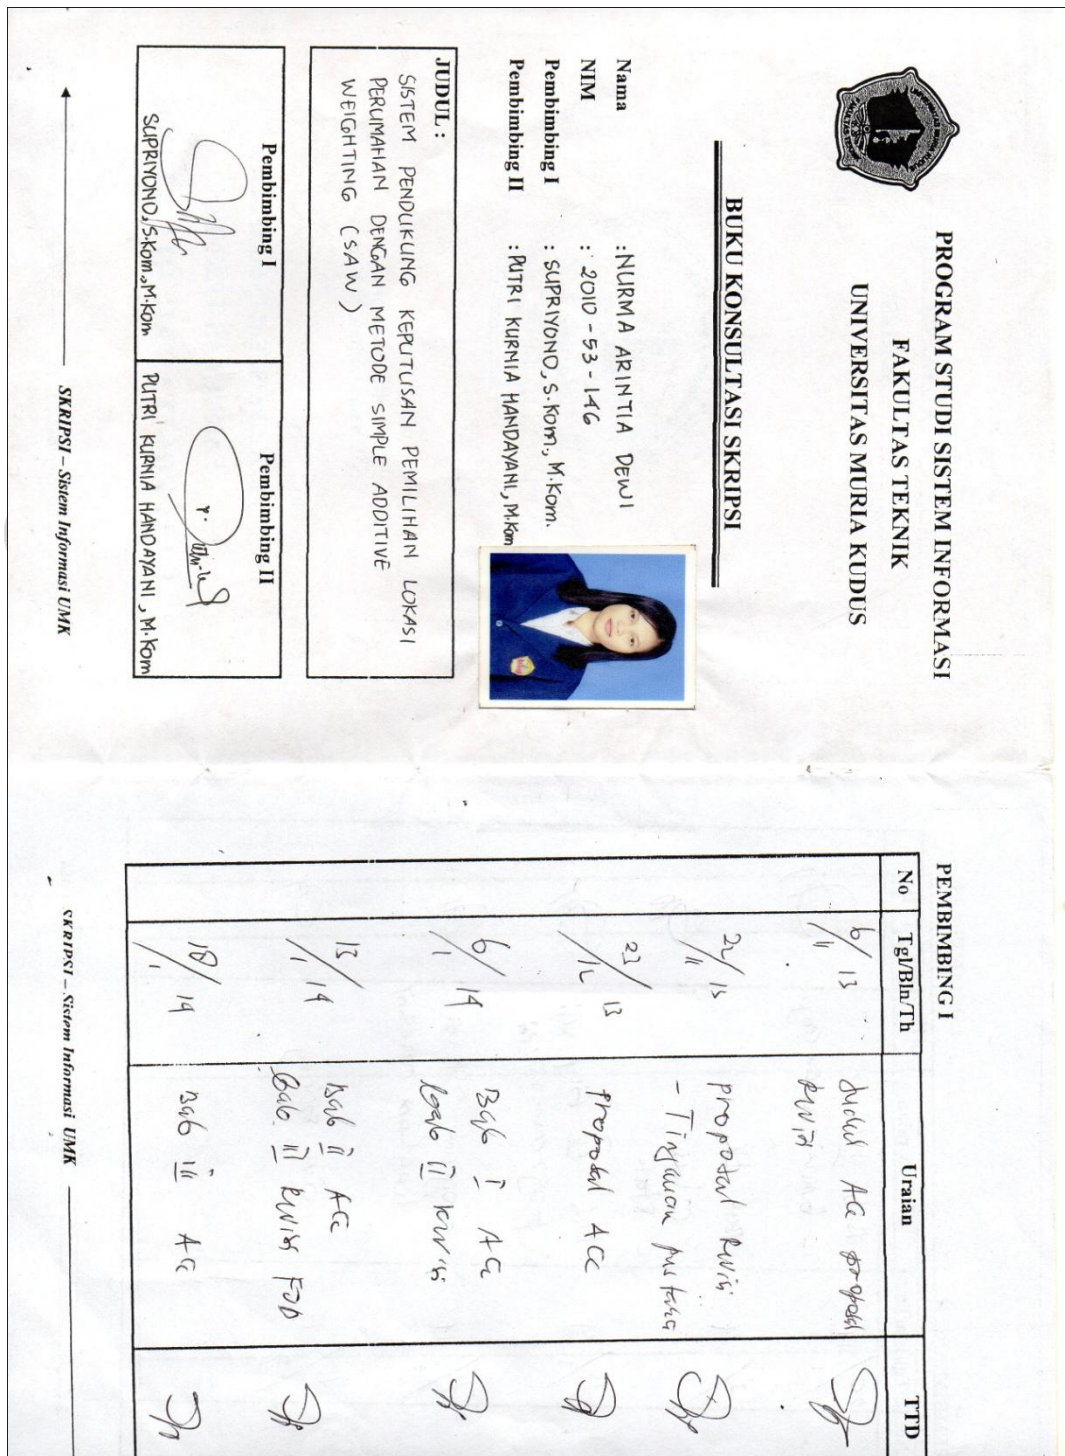 PROGRAM STUDI SISTEM INFORMASI
FAKULTAS TEKNIK
UNIVERSITAS MURIA KUDUS
BUKU KONSULTASI SKRIPSI
Nama : NURMA ARINTIA DEWI
NIM : 2010-53-146
Pembimbing I : SUPRIYONO, S.Kom., M.Kom.
Pembimbing II : PUTRI KURNIA HANDAYANI, M.Kom
JUDUL :
SISTEM PENDUKUNG KEPUTUSAN PEMILIHAN LOKASI
PERUMAHAN DENGAN METODE SIMPLE ADDITIVE
WEIGHTING (SAW)
Pembimbing I Pembimbing II
SUPRIYONO, S.Kom., M.Kom PUTRI KURNIA HANDAYANI, M.Kom
SKRIPSI – Sistem Informasi UMK
PEMBIMBING I
No Tgl/Bln/Th Uraian TTD
6/11 13 Judul Acc proposal
Revisi
22/11 13 proposal Revisi
- Tinjauan pustaka
23/12 13 proposal Acc
6/1 14 Bab I Acc
Bab II Revisi
13/1 14 Bab II Acc
Bab III Revisi FOD
18/1 14 Bab III Acc
SKRIPSI – Sistem Informasi UMK